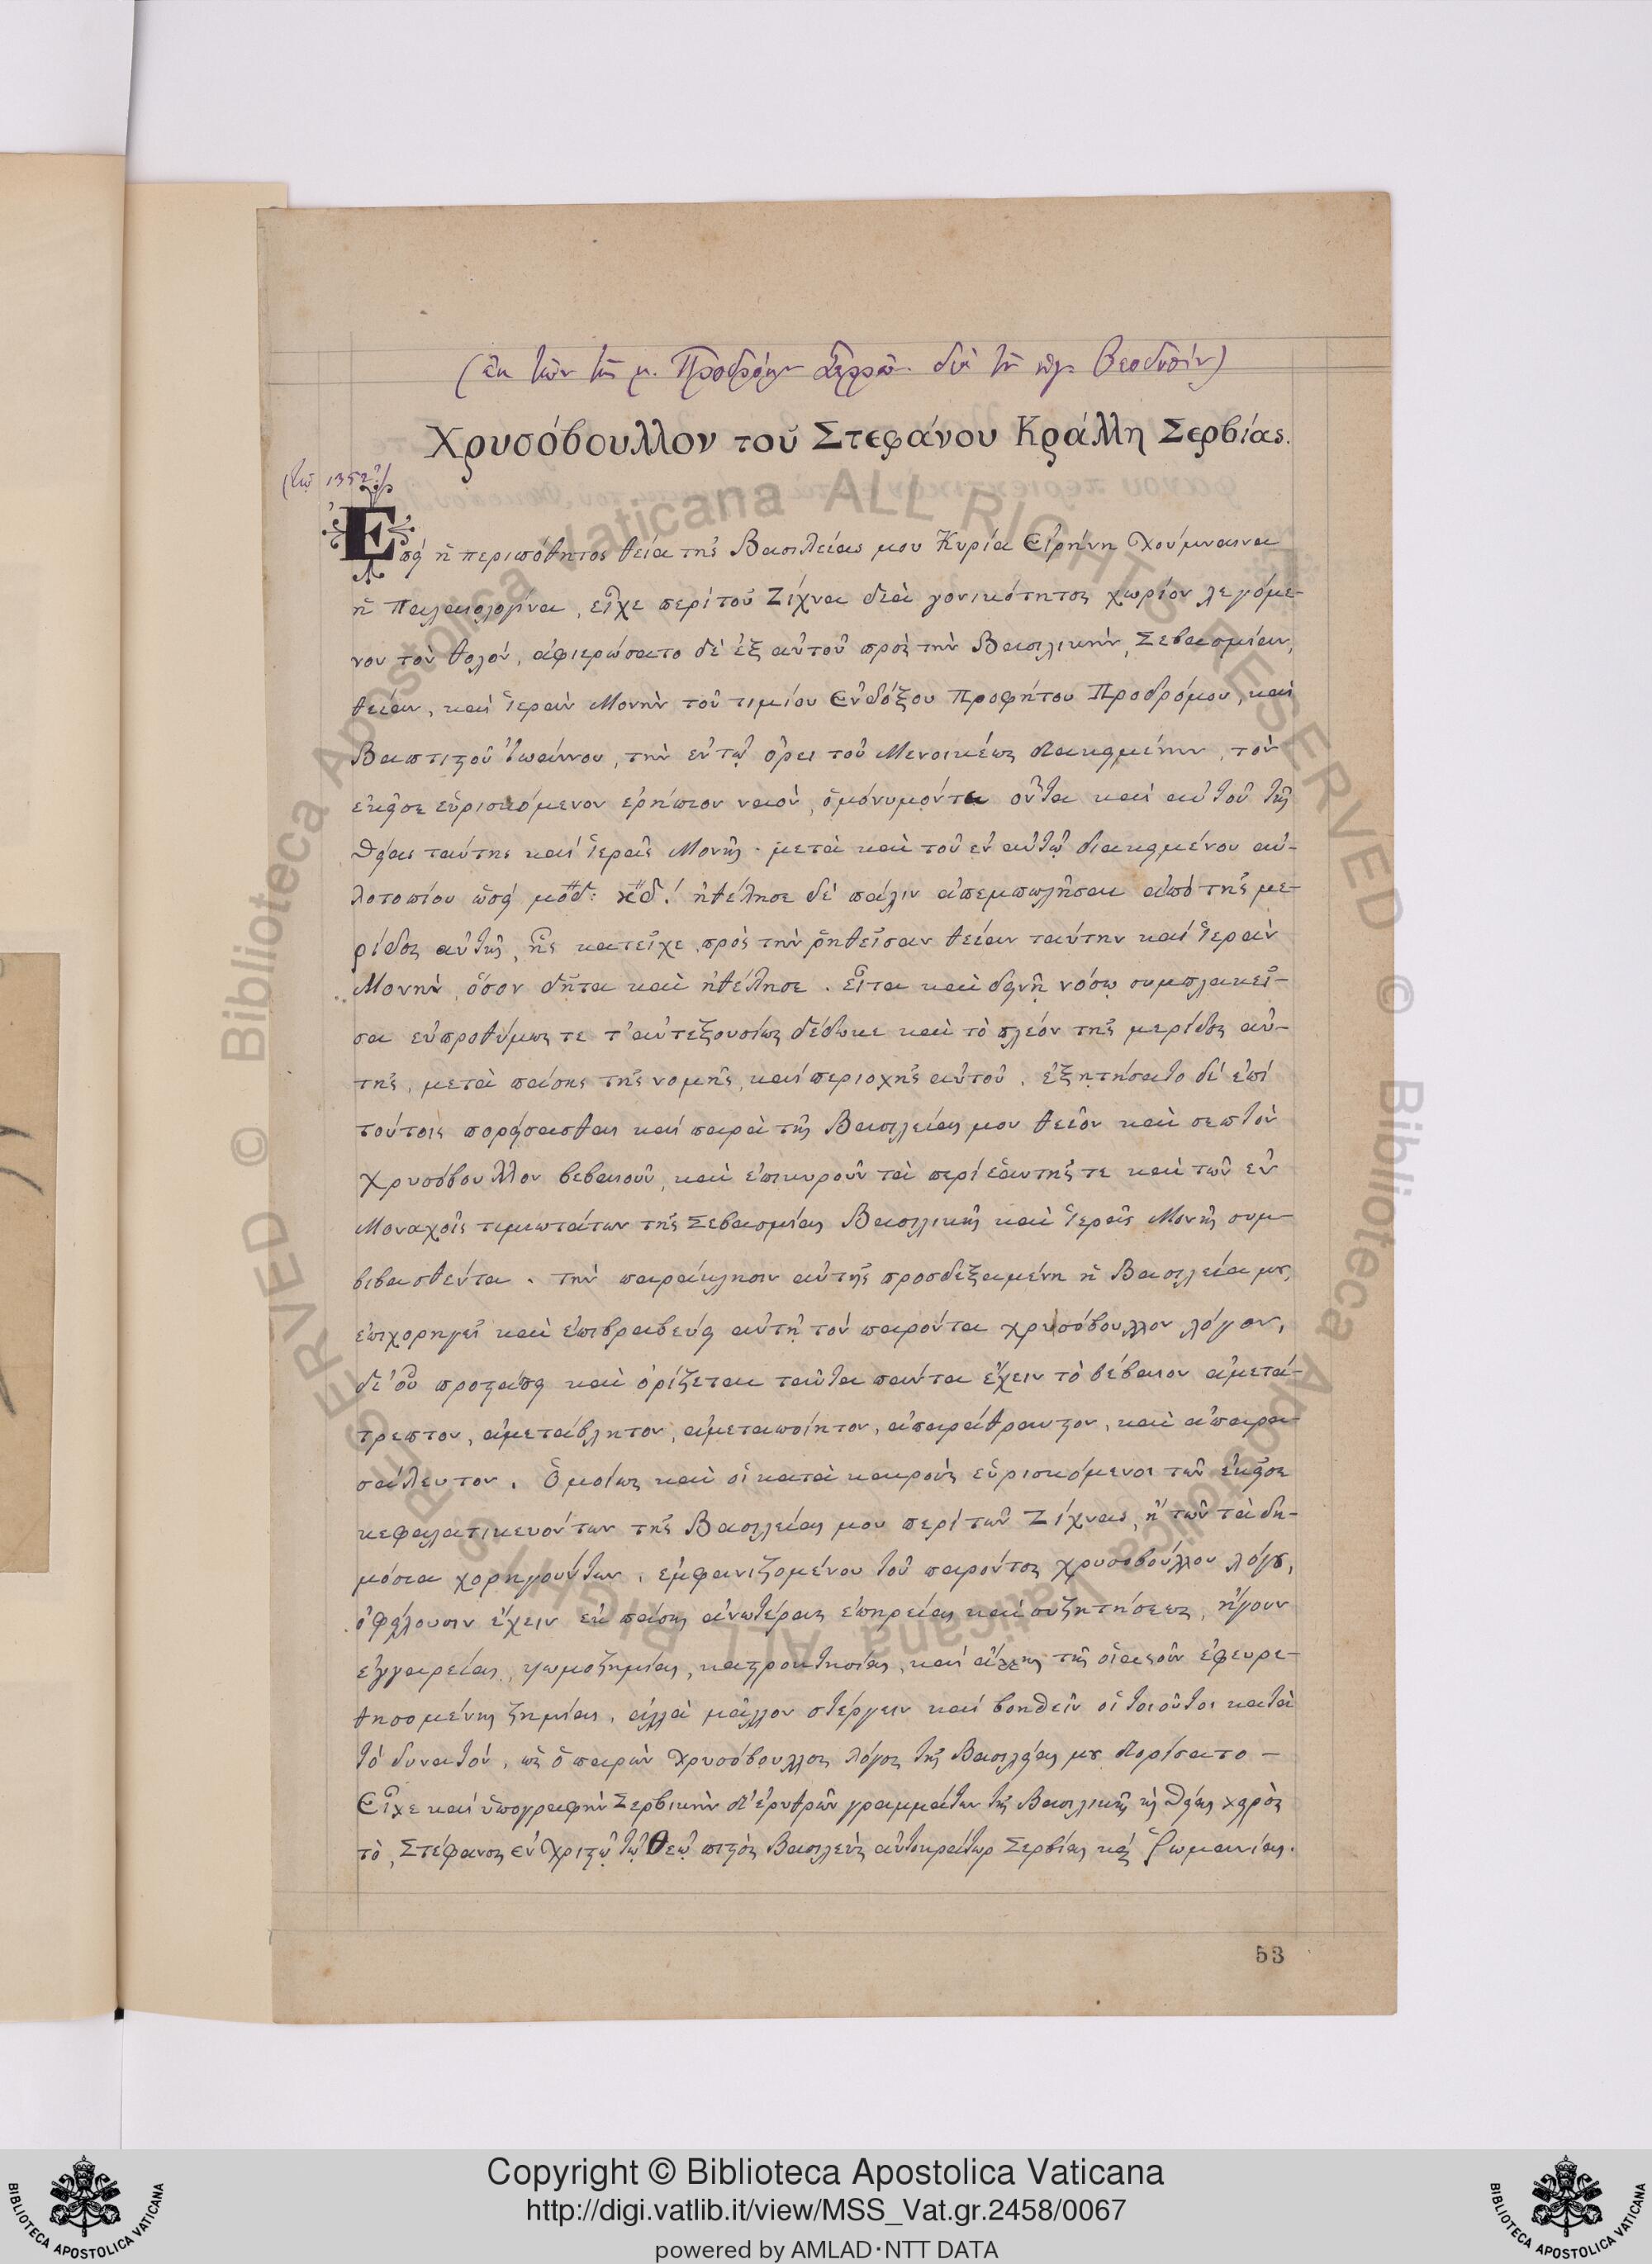 (ἐκ τῶν τῆς μ. Προδρόμου Σερρῶν διὰ τοῦ
Χρυσόβουλλον τοῦ Στεφάνου Κράλλη Σερβίας.
1352
Ἐπεὶ ἡ περιπόθητος θεία τῆς Βασιλείας μου Κυρία Εἰρήνη Χούμναινα
ἡ Παλαιολογίνα, εἶχε περὶ τοῦ Ζίχνα διὰ γονικότητος χωρίον λεγόμε-
νον τὸν θολόν, ἀφιερώσατο δὲ ἐξ αὐτοῦ πρὸς τὴν Βασιλικήν, Σεβασμίαν,
θείαν, καὶ ἱερὰν Μονὴν τοῦ τιμίου Ἐνδόξου Προφήτου Προδρόμου, καὶ
Βαπτιστοῦ Ἰωάννου, τὴν ἐν τῷ ὄρει τοῦ Μενοικέως διακειμένην, τὸν
ἐκεῖσε εὑρισκόμενον ἐρήπιον ναὸν, ὁμόνυμόντα ὄντα καὶ αὐτοῦ τῆς
θείας ταύτης καὶ ἱερᾶς Μονῆς· μετὰ καὶ τοῦ ἐν αὐτῷ διακειμένου αὐ-
λοτοπίου ὡσεὶ μοδ: κδ! ἠθέλησε δὲ πάλιν ἀπεμπωλῆσαι ἀπὸ τῆς με-
ρίδος αὐτῆς, ἧς κατεῖχε πρὸς τὴν ῥηθεῖσαν θείαν ταύτην καὶ ἱερὰν
Μονὴν, ὅσον δῆτα καὶ ἠθέλησε. εἶτα καὶ δεινῇ νόσῳ συμπλακεῖ-
σα εὐπροθύμως τε τ' αὐτεξουσίως δέδωκε καὶ τὸ πλέον τῆς μερίδος αὐ-
τῆς, μετὰ πάσης τῆς νομῆς, καὶ περιοχῆς αὐτοῦ. ἐξητήσατο δὲ ἐπὶ
τούτοις πορείσασθαι καὶ παρὰ τῆς Βασιλείας μου θεῖον καὶ σεπτὸν
χρυσόβουλλον βεβαιοῦν, καὶ ἐπικυροῦν τὰ περὶ ἑαυτῆς τε καὶ τῶν ἐν
Μοναχοῖς τιμιωτάτων τῆς Σεβασμίας Βασιλικῆς καὶ ἱερᾶς Μονῆς συμ-
βιβασθέντα. τὴν παράκλησιν αὐτῆς προσδεξαμένη ἡ Βασιλεία μου,
ἐπιχορηγεῖ καὶ ἐπιβραβεύει αὐτῇ τὸν παρόντα χρυσόβουλλον λόγον,
δι' οὗ προστάττει καὶ ὁρίζεται ταῦτα πάντα ἔχειν τὸ βέβαιον ἀμετά-
τρεπτον, ἀμετάβλητον, ἀμεταποίητον, ἀπαράθραυστον, καὶ ἀπαρα-
σάλευτον. Ὁμοίως καὶ οἱ κατὰ καιροὺς εὑρισκόμενοι τῶν ἐκεῖσε
κεφαλατικευόντων τῆς Βασιλείας μου περὶ τῶν Ζίχνας, ἢ τῶν τὰ δη-
μόσια χορηγούντων, ἐμφανιζομένου τοῦ παρόντος χρυσοβούλλου λόγου,
ὀφείλουσιν ἔχειν ἐκ πάσης ἀνωτέρας ἐπηρείας καὶ συζητήσεως, ἤγουν
ἐγγαρείας, ψωμοζημίας, καστροκτησίας, καὶ ἄλλης τῆς οἱασοῦν ἐφευρε-
θησομένης ζημίας, ἀλλὰ μᾶλλον στέργειν καὶ βοηθεῖν οἱ τοιοῦτοι κατὰ
τὸ δυνατόν, ὡς ὁ παρὼν Χρυσόβουλλος λόγος τῆς Βασιλείας μου διορίσατο –
Εἶχε καὶ ὑπογραφὴν Σερβικὴν δι' ἐρυθρῶν γραμμάτων τῆς Βασιλικῆς κỳ θείας χειρὸς
τὸ, Στέφανος ἐν Χριστῷ τῷ Θεῷ πιστὸς Βασιλεὺς αὐτοκράτωρ Σερβίας καὶ Ῥωμανίας.
53
Copyright © Biblioteca Apostolica Vaticana
http://digi.vatlib.it/view/MSS_Vat.gr.2458/0067
powered by AMLAD·NTT DATA